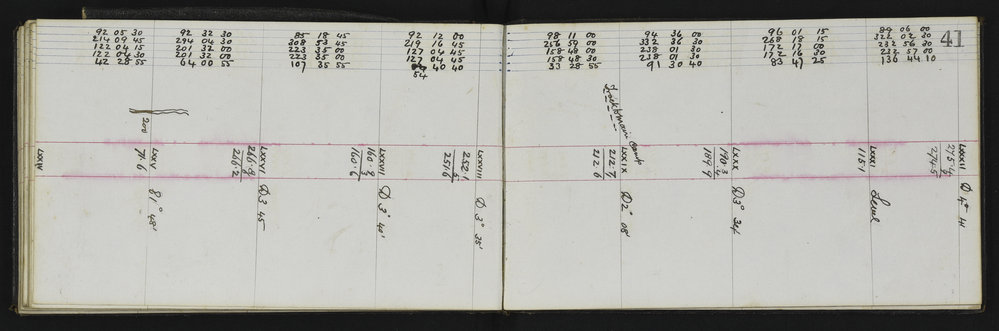 41
92 05 30
214 09 45
122 04 15
122 04 30
42 28 55
92 32 30
294 04 30
201 32 00
201 32 00
64 00 55
85 18 45
308 53 45
223 35 00
223 35 00
107 35 55
92 12 00
219 16 45
127 04 45
127 04 45
40 40
54
98 11 00
256 59 00
158 48 00
158 48 30
33 28 55
94 36 00
332 36 30
238 01 30
238 01 30
91 30 40
96 01 15
268 18 15
172 17 00
172 16 30
83 47 25
89 06 00
322 02 30
232 56 30
232 57 00
136 44 10
LXXIV
200
LXXV
74.6
81° 48'
LXXVI
246.8
6
246.2
D 3 45
LXXVII
160.9
3
160.6
D 3° 40'
LXXVIII
252.1
251.6
D 3° 35'
Track to main
LXXIX
212.7
212.6
D 2° 08'
LXXX
190.3
.4
189.9
D 3° 34'
LXXXI
115.1
Level
LXXXII
275.4
274.5
D 4°